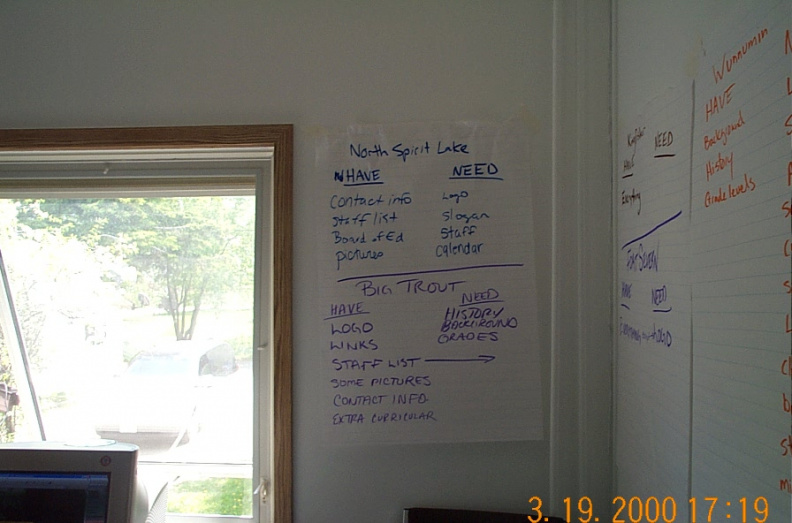 North Spirit Lake
HAVE NEED
Contact info Logo
Staff list Slogan
Board of Ed Staff
pictures Calendar
BIG TROUT
HAVE NEED
LOGO HISTORY
LINKS BACKGROUND
GRADES
STAFF LIST
SOME PICTURES
CONTACT INFO
EXTRA CURRICULAR
NEED
HAVE
Existing
HAVE NEED
Wunnumin
HAVE
Background
History
Grade levels
3.19.2000 17:19